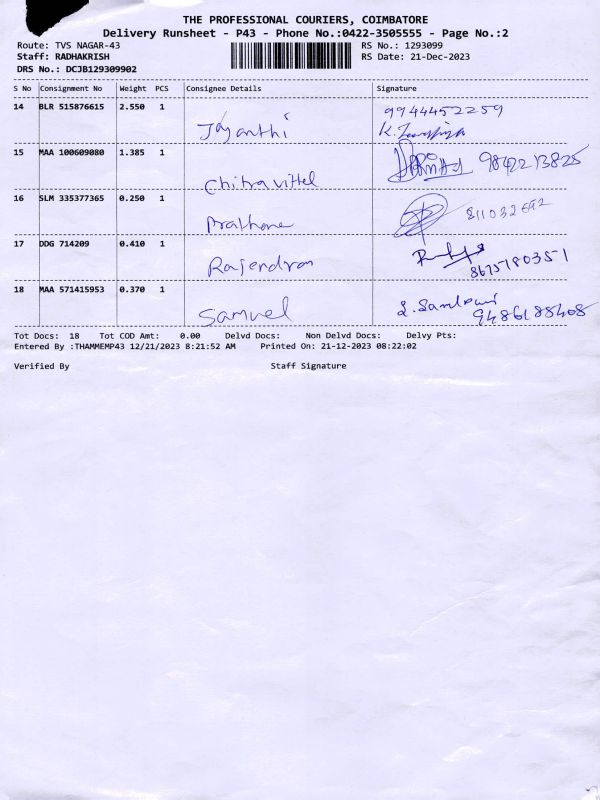 THE PROFESSIONAL COURIERS, COIMBATORE
Delivery Runsheet - P43 - Phone No.:0422-3505555 - Page No.:2
Route: TVS NAGAR-43 RS No.: 1293099
Staff: RADHAKRISH RS Date: 21-Dec-2023
DRS No.: DCJB129309902
S No Consignment No Weight PCS Consignee Details Signature
14 BLR 515876615 2.550 1 Jayanthi 9944452259
15 MAA 100609080 1.385 1 Chitravittel 9842213825
16 SLM 335377365 0.250 1 Prathane
17 DDG 714209 0.410 1 Rajendran 8675780351
18 MAA 571415953 0.370 1 Samuel 9486188408
Tot Docs: 18 Tot COD Amt: 0.00 Delvd Docs: Non Delvd Docs: Delvy Pts:
Entered By :THAMMEMP43 12/21/2023 8:21:52 AM Printed On: 21-12-2023 08:22:02
Verified By Staff Signature